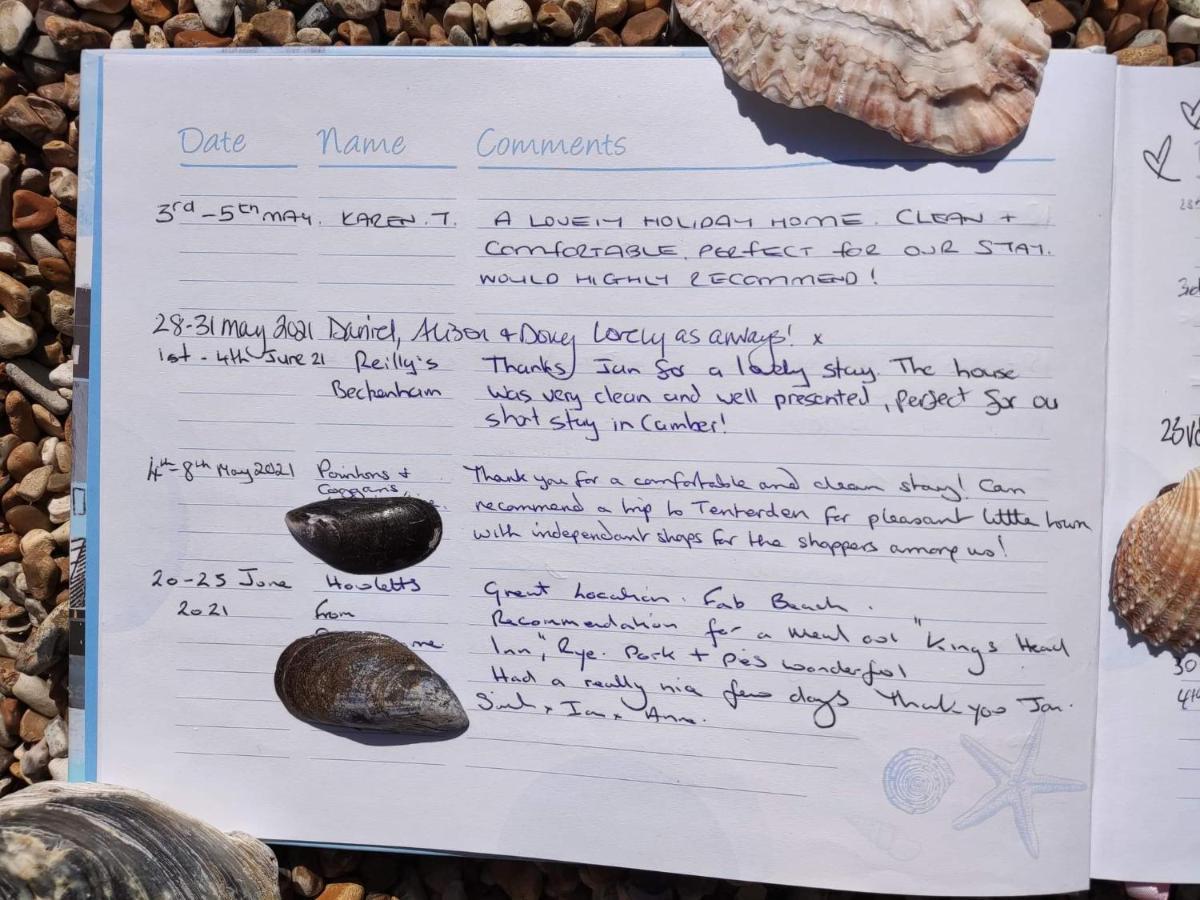 Date Name Comments
3rd - 5th MAY. KAREN. T. A LOVELY HOLIDAY HOME. CLEAN +
COMFORTABLE. PERFECT FOR OUR STAY.
WOULD HIGHLY RECOMMEND!
28-31 May 2021 Daniel, Alison & Doug Lovely as always! x
1st - 4th June 21 Reilly's Thanks Jan for a lovely stay. The house
Beckenham was very clean and well presented, perfect for our
short stay in Camber!
4th - 8th May 2021 + Thank you for a comfortable and clean stay! Can
recommend a trip to Tenterden for pleasant little town
with independant shops for the shoppers among us!
20-25 June Howletts Great Location. Fab Beach.
2021 from Recommendation for a meal out "Kings Head
Inn", Rye. Pork + Pies wonderful
Had a really nice few days Thank you Jan.
x Ian x Anne.
23rd
30
4th